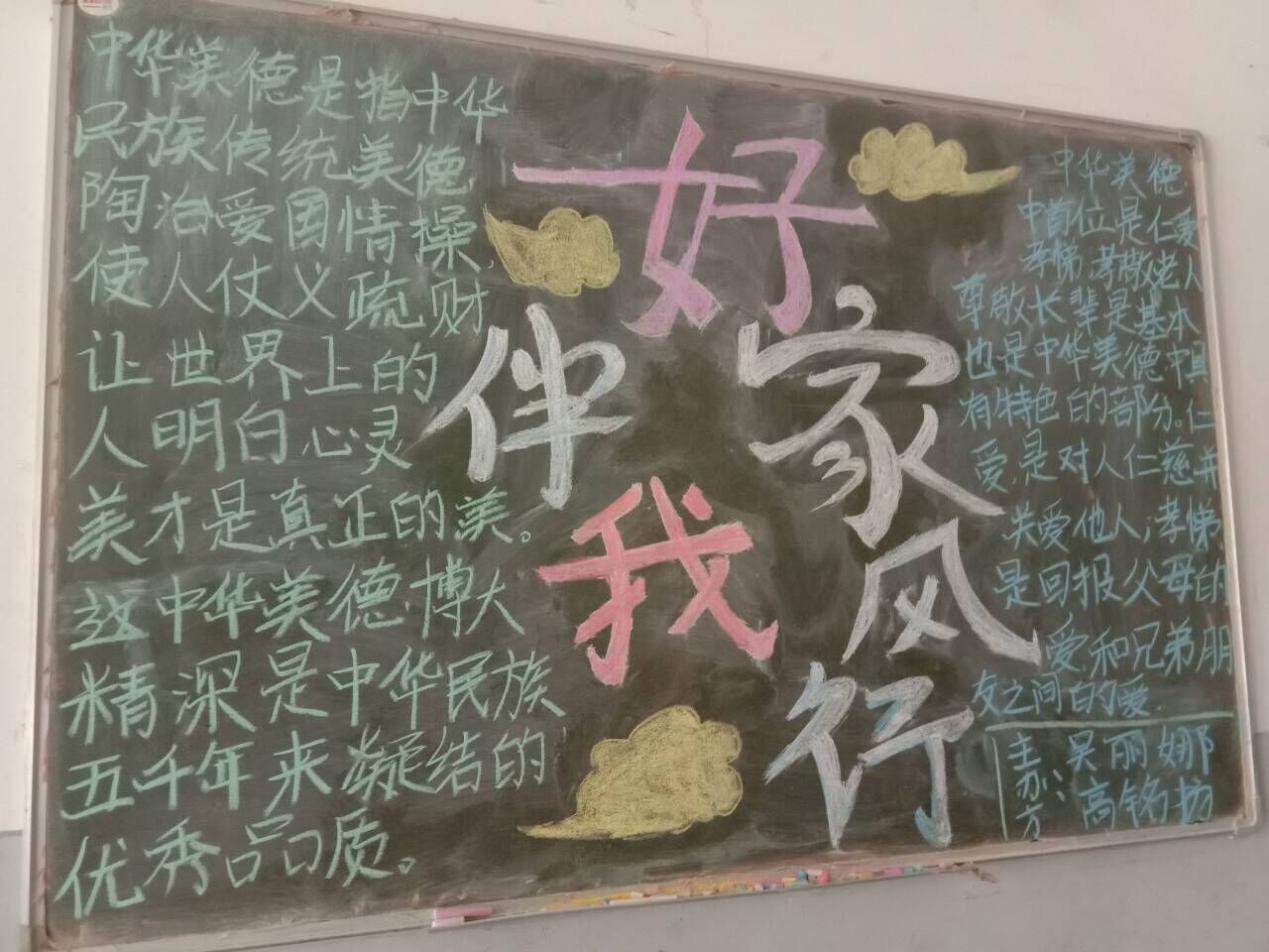 好家风
伴我行
中华美德是指中华
民族传统美德,
陶冶爱国情操,
使人仗义疏财
让世界上的
人明白心灵
美才是真正的美。
这中华美德,博大
精深是中华民族
五千年来凝结的
优秀品质。
中华美德
中首位是仁爱
孝悌,孝敬老人
尊敬长辈是基本
也是中华美德中具
有特色的部分。仁
爱,是对人仁慈并
关爱他人;孝悌
是回报父母的
爱,和兄弟朋
友之间的爱.
主办方:吴丽娜
高铭